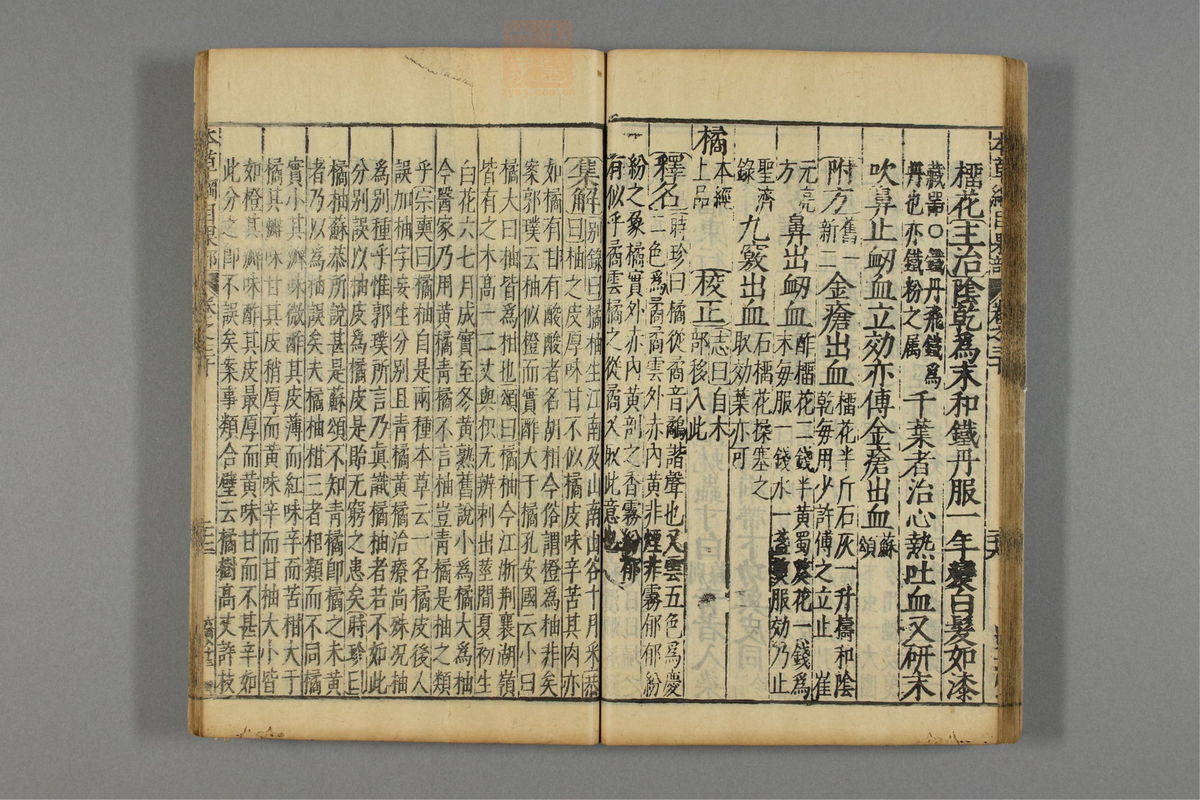 榴花主治陰乾為末和鐵丹服一年變白髮如漆
藏器○鐵丹飛鐵為
丹也亦鐵粉之属
千葉者治心熱吐血又研末
吹鼻止衂血立効亦傅金瘡出血
蘇
頌
附方
舊一
新二
金瘡出血
榴花半斤石灰一升擣和陰
乾每用少許傅之立止 崔
元亮
方
鼻出衂血
酢榴花二錢半黄蜀葵花一錢為
末每服一錢水一盞煎服効乃止
聖濟
錄
九竅出血
石榴花揉塞之
取効葉亦可
橘
本經
上品
校正
志曰自木
部移入此
釋名
時珍曰橘從矞音鷸諧聲也又雲五色為慶
二色為矞矞雲外赤内黄非煙非霧郁郁紛
紛之象橘實外赤内黄剖之香霧紛郁
有似乎矞雲橘之從矞又取此意也
集解
别錄曰橘柚生江南及山南山谷十月采恭
曰柚之皮厚味甘不似橘皮味辛苦其肉亦
如橘有甘有酸酸者名胡柑今俗謂橙為柚非矣
案郭璞云柚似橙而實酢大于橘孔安國云小曰
橘大曰柚皆為柑也頌曰橘柚今江浙荆襄湖嶺
皆有之木高一二丈與枳无辨刺出莖間夏初生
白花六七月成實至冬黄熟舊說小為橘大為柚
今醫家乃用黄橘青橘不言柚豈青橘是柚之類
乎宗奭曰橘柚自是兩種本草云一名橘柚後人
誤加柚字妄生分别且青橘黄橘治療尚殊况柚
為别種乎惟郭璞所言乃真識橘柚者若不如此
分别誤以柚皮為橘皮是貽无窮之患矣時珍曰
橘柚蘇恭所說甚是蘇頌不知青橘即橘之未黄
者乃以為柚誤矣夫橘柚柑三者相類而不同橘
實小其瓣味微酢其皮薄而紅味辛而苦柑大于
橘其瓣味甘其皮稍厚而黄味辛而甘柚大小皆
如橙其瓣味酢其皮最厚而黄味甘而不甚辛如
此分之即不誤矣案事類合璧云橘樹高丈許枝